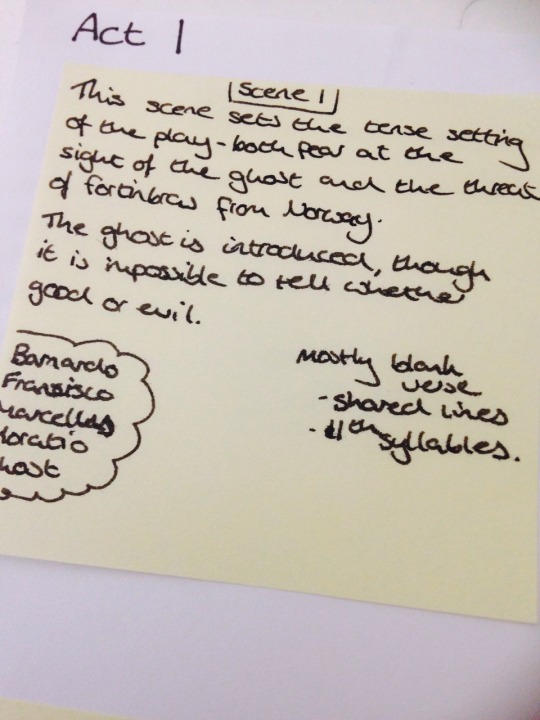 Act 1
Scene 1
This scene sets the tense setting
of the play - both fear at the
sight of the ghost and the threat
of fortinbras from Norway.
The ghost is introduced, though
it is impossible to tell whether
good or evil.
Barnardo
Fransisco
Marcellus
Horatio
host
mostly blank
verse
- shared lines
- 11th syllables.